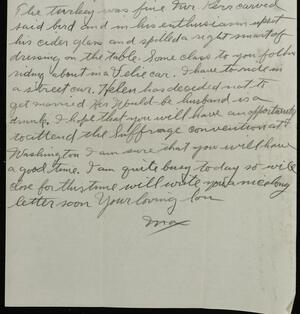 The turkey was fine Mr Kerr carved
said bird and in his enthusiasm upset
his cider glass and spilled a right smart of
dressing on the table. Some class to you folks
riding about in a Velie car. I have to ride in
a street car. Helen has decided not to
get married Her would be husband is a
drunk. I hope that you will have an opportunity
to attend the Suffrage convention at
Washington I am sure that you will have
a good time. I am quite busy today so will
close for this time will write you a nice long
letter soon Your loving son